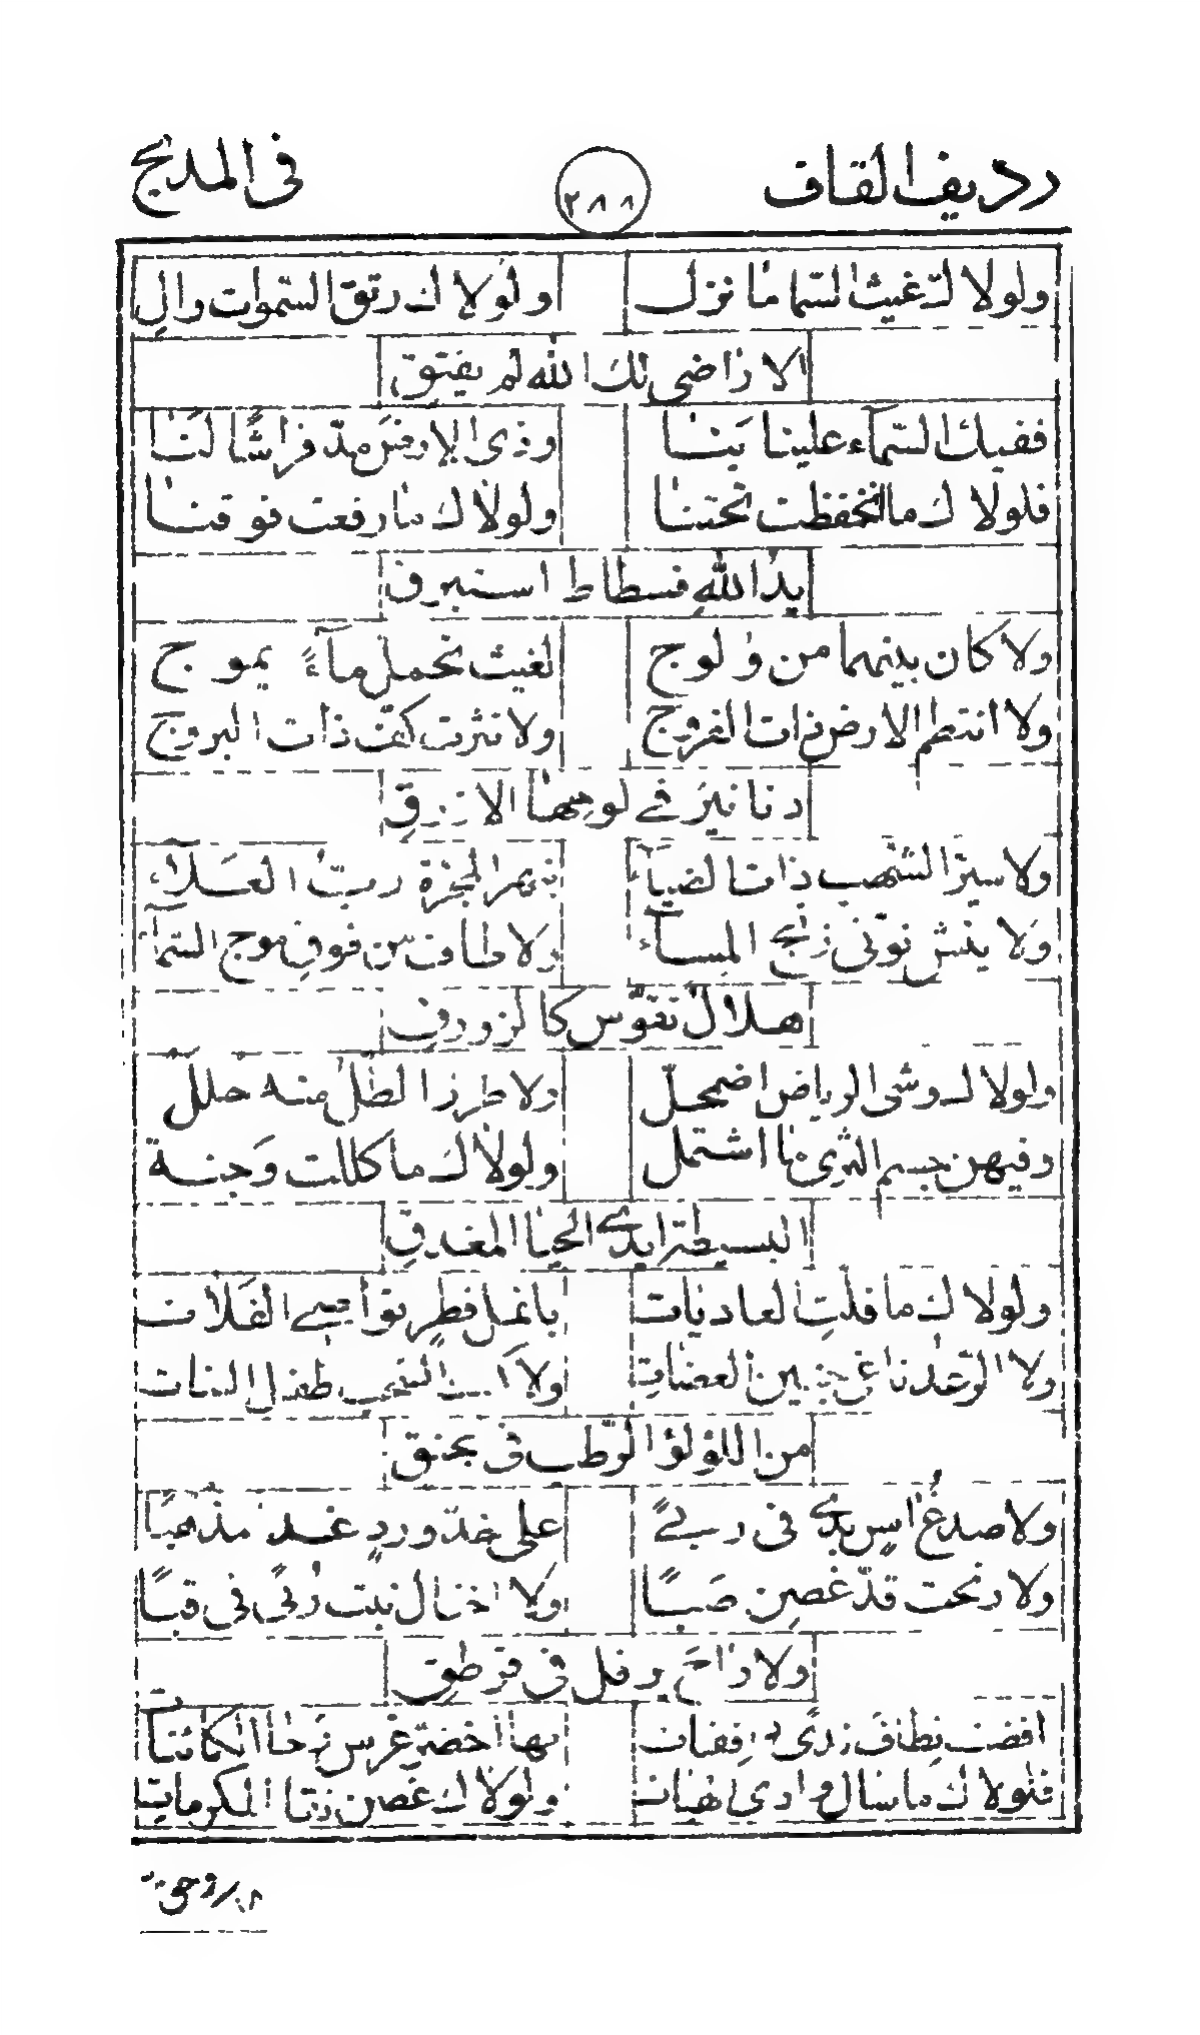 رديف القاف
٢٨٨
في المديح
ولولاك غيث السما ما نزل ولولاك رتق السموات والِ
الاراضي لك الله لم يفتق
ففيك السمآء علينا بَنا وذي الارض مدّ فراشًا لنا
فلولاك ما انخفظت تحتنا ولولاك ما رفعت فوقنا
يدُ اللهِ فسطاط استبرق
ولا كان بينهما من وُلوج لغيث تحمل مآءً يموج
ولا انتظم الارض ذات الفروج ولا نثرت كفّ ذات البروج
دنانيرَ في لوحها الازرقِ
ولا سيّر الشهب ذات الضيآء بنهر المجرة ربّ العَلاء
ولا ينش نوتي زنج المسآء ولا طاف من فوق موج السمآء
هلالٌ تقوّس كالزورق
ولولاك وشي الرياض اضمحلّ ولا طرز الطلّ منه حلل
وفيهن جسم الثرى ما اشتمل ولولاك ما كللت وَجنة
البسيطة ايدي الحيا المغدقِ
ولولاك ما فلّتِ العاديات بانمل قطرٍ نواصي الفَلات
ولا الرّعد ناغى جنين العضاتِ ولا السحب طفل النبات
من اللؤلؤ الرّطب في بخنق
ولا صدغُ آسٍ بدى في ربي على خدّ وردٍ غدا مذهبًا
ولا رنحت قدّ غصنٍ صَبًا ولا اختال نبت رُبًى في قبًا
ولا راحَ يرفل في قرطقِ
افضت نِطافَ ندًى بها اخضرّ غرس رَجا الكائنات
فلولاك ما سال وادي الهبات ولولاك غصن نقا المكرمات